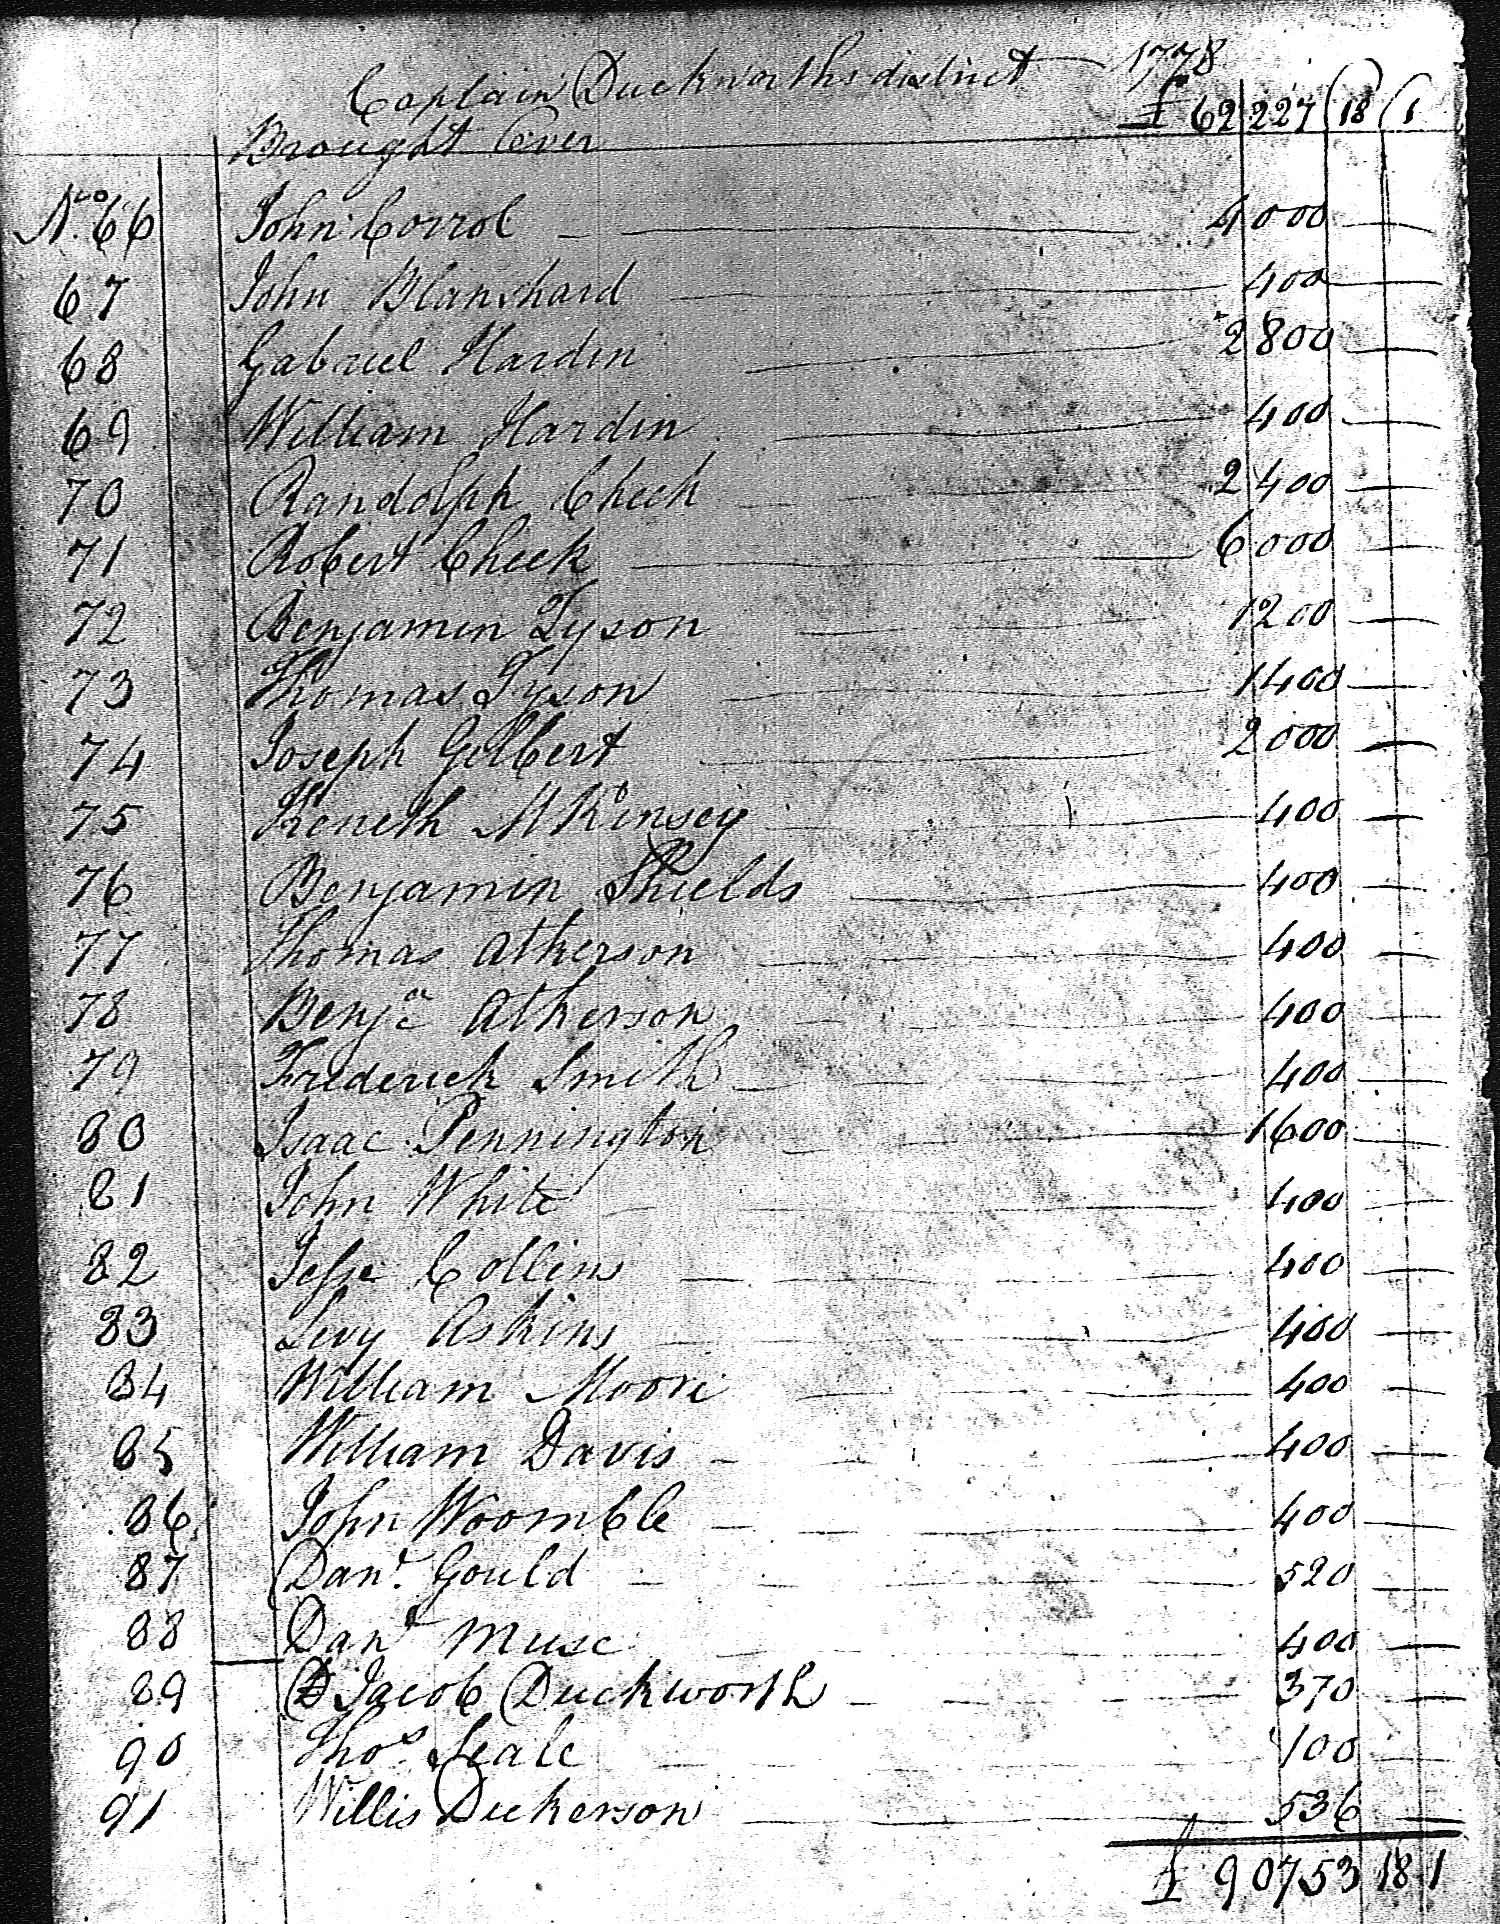 Captain Duckworths district 1778
Brought Over £ 62 227 18 1
No. 66 John Corrol 4000
67 John Blanchard 400
68 Gabriel Hardin 2800
69 William Hardin 400
70 Randolph Cheek 2400
71 Robert Cheek 6000
72 Benjamin Tyson 1200
73 Thomas Tyson 1400
74 Joseph Gilbert 2000
75 Keneth McKinsey 400
76 Benjamin Shields 400
77 Thomas Atkerson 400
78 Benja Atkerson 400
79 Frederick Smith 400
80 Isaac Pennington 1600
81 John White 400
82 Jesse Collins 400
83 Levy Askins 400
84 William Moore 400
85 William Davis 400
86 John Woomble 400
87 Danl. Gould 520
88 Danl Muse 400
89 Jacob Duckworth 370
90 Thos. Seale 100
91 Willis Dickerson 536
£ 90753 18 1